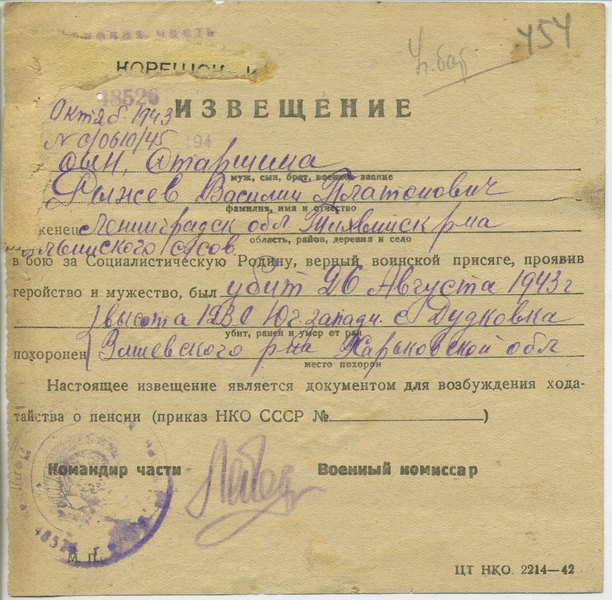 часть
454
КОРЕШОК К
48526
ИЗВЕЩЕНИЕ
Октяб 1943
N С/0610/45 194
сын, Старшина
муж, сын, брат, военное звание
Рыжев Василий Платонович
фамилия, имя и отчество
женец Ленинградск обл р на
область, район, деревня и село
в бою за Социалистическую Родину, верный воинской присяге, проявив
геройство и мужество, был убит 26 Августа 1943 г
высота 123 0 Юг запад с Дудковка
убит, ранен и умер от ран
похоронен Змиевского р на Харьковской обл
место похорон
Настоящее извещение является документом для возбуждения хода-
тайства о пенсии (приказ НКО СССР №)
Командир части Военный комиссар
М. П.
ЦТ НКО 2214—42